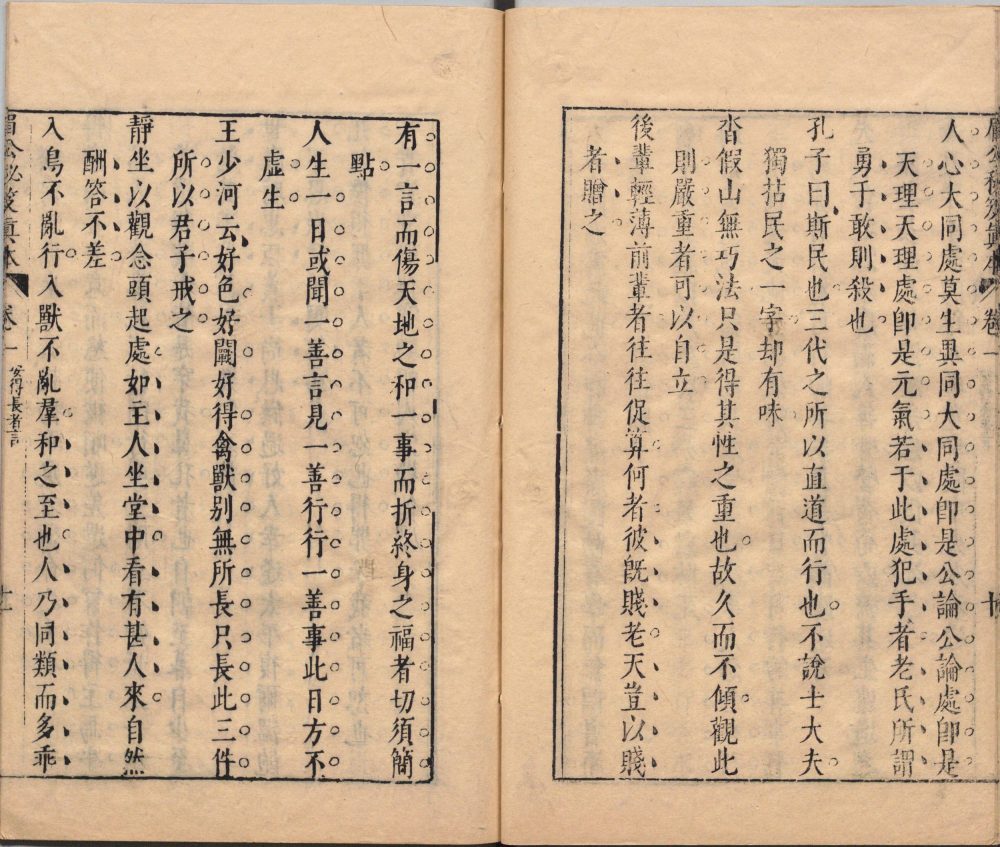 人心大同處莫生異同大同處卽是公論公論處卽是
天理天理處卽是元氣若于此處犯手者老氏所謂
勇于敢則殺也
孔子曰斯民也三代之所以直道而行也不說士大夫
獨拈民之一字却有味
沓假山無巧法只是得其性之重也故久而不傾觀此
則嚴重者可以自立
後輩輕薄前輩者往往促算何者彼旣賤老天豈以賤
者贈之
有一言而傷天地之和一事而折終身之福者切須簡
點
人生一日或聞一善言見一善行行一善事此日方不
虛生
王少河云好色好鬭好得禽獸别無所長只長此三件
所以君子戒之
靜坐以觀念頭起處如主人坐堂中看有甚人來自然
酬答不差
入鳥不亂行入獸不亂羣和之至也人乃同類而多乖
眉公祕笈眞本
卷一
安得長者言